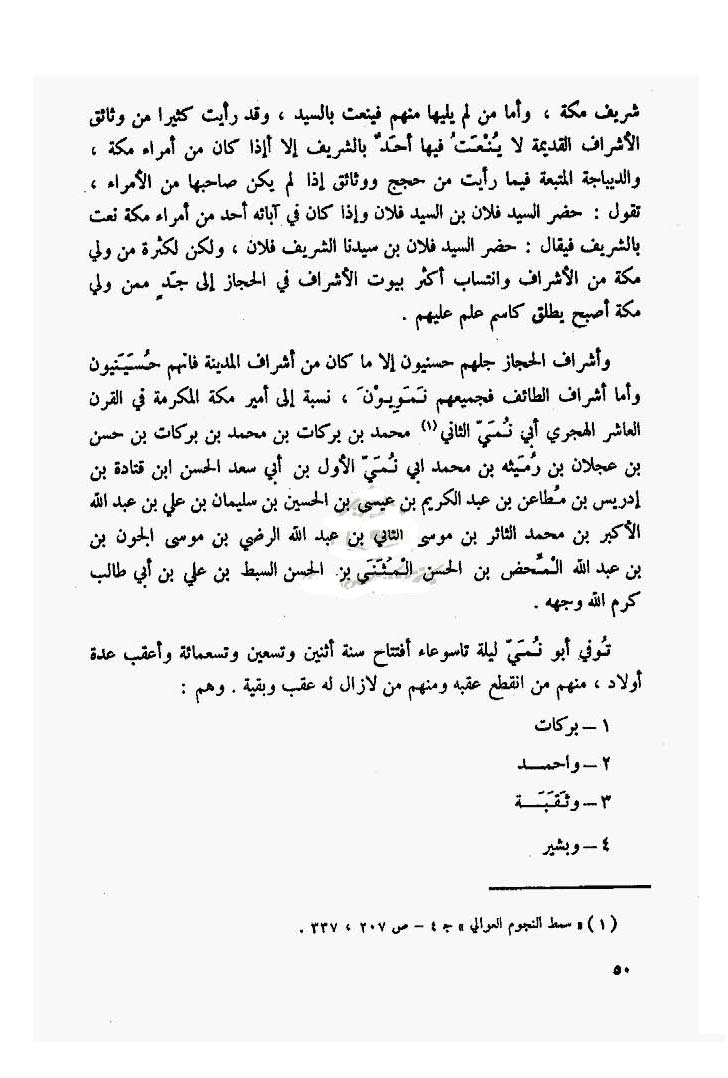 شريف مكة ، وأما من لم يليها منهم فينعت بالسيد ، وقد رأيت كثيرا من وثائق
الأشراف القديمة لا يُنْعَتُ فيها أحَدٌ بالشريف إلا أإذا كان من أمراء مكة ،
والديباجة المتبعة فيما رأيت من حجج ووثائق إذا لم يكن صاحبها من الأمراء ،
تقول : حضر السيد فلان بن السيد فلان وإذا كان في آبائه أحد من أمراء مكة نعت
بالشريف فيقال : حضر السيد فلان بن سيدنا الشريف فلان ، ولكن لكثرة من ولي
مكة من الأشراف وانتساب أكثر بيوت الأشراف في الحجاز إلى جدٍّ ممن ولي
مكة أصبح يطلق كاسم علم عليهم .
وأشراف الحجاز جلهم حسنيون إلا ما كان من أشراف المدينة فانهم حُسَيَنيون
وأما أشراف الطائف فجميعهم نَمَوِيوْنَ ، نسبة إلى أمير مكة المكرمة في القرن
العاشر الهجري أبي نُمَيّ الثاني(١) محمد بن بركات بن محمد بن بركات بن حسن
بن عجلان بن رُمَيْثه بن محمد ابي نُمَيّ الأول بن أبي سعد الحسن ابن قتادة بن
إدريس بن مُطاعن بن عبد الكريم بن عيسى بن الحسين بن سليمان بن علي بن عبد الله
الأكبر بن محمد الثائر بن موسى الثاني بن عبد الله الرضي بن موسى الجون بن
بن عبد الله الْمَحْض بن الحسن الْمُثنَّى بن الحسن السبط بن علي بن أبي طالب
كرم الله وجهه .
تُوفي أبو نُمَيّ ليلة تاسوعاء أفتتاح سنة أثنين وتسعين وتسعمائة وأعقب عدة
أولاد ، منهم من انقطع عقبه ومنهم من لازال له عقب وبقية . وهم :
١ – بركات
٢ – واحمـــد
٣ – وثَقَبَــة
٤ – وبشير
(١) « سمط النجوم العوالي » جـ ٤ – ص ٢٠٧ ، ٣٣٧ .
٥٠